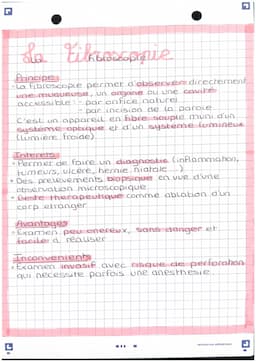 La Fibroscopie
Principe:
• La fibroscopie permet d'observer directement
une muqueuse, un organe ou une cavité
accessible: - par orifice naturel
- par incision de la paroie
C'est un appareil en fibre souple muni d'un
système optique et d'un système lumineux
(lumière froide)
Interets:
• Permet de faire un diagnostic (inflammation,
tumeurs, ulcère, hernie hiatale...)
• Des prelevements biopsique en vue d'une
observation microscopique
• Geste therapeutique comme ablation d'un
corp etranger
Avantages
• Examen peu onereux, sans danger et
facile à réaliser
Inconvenients
• Examen invasif avec risque de perforation
qui nécessite parfois une anesthesie.